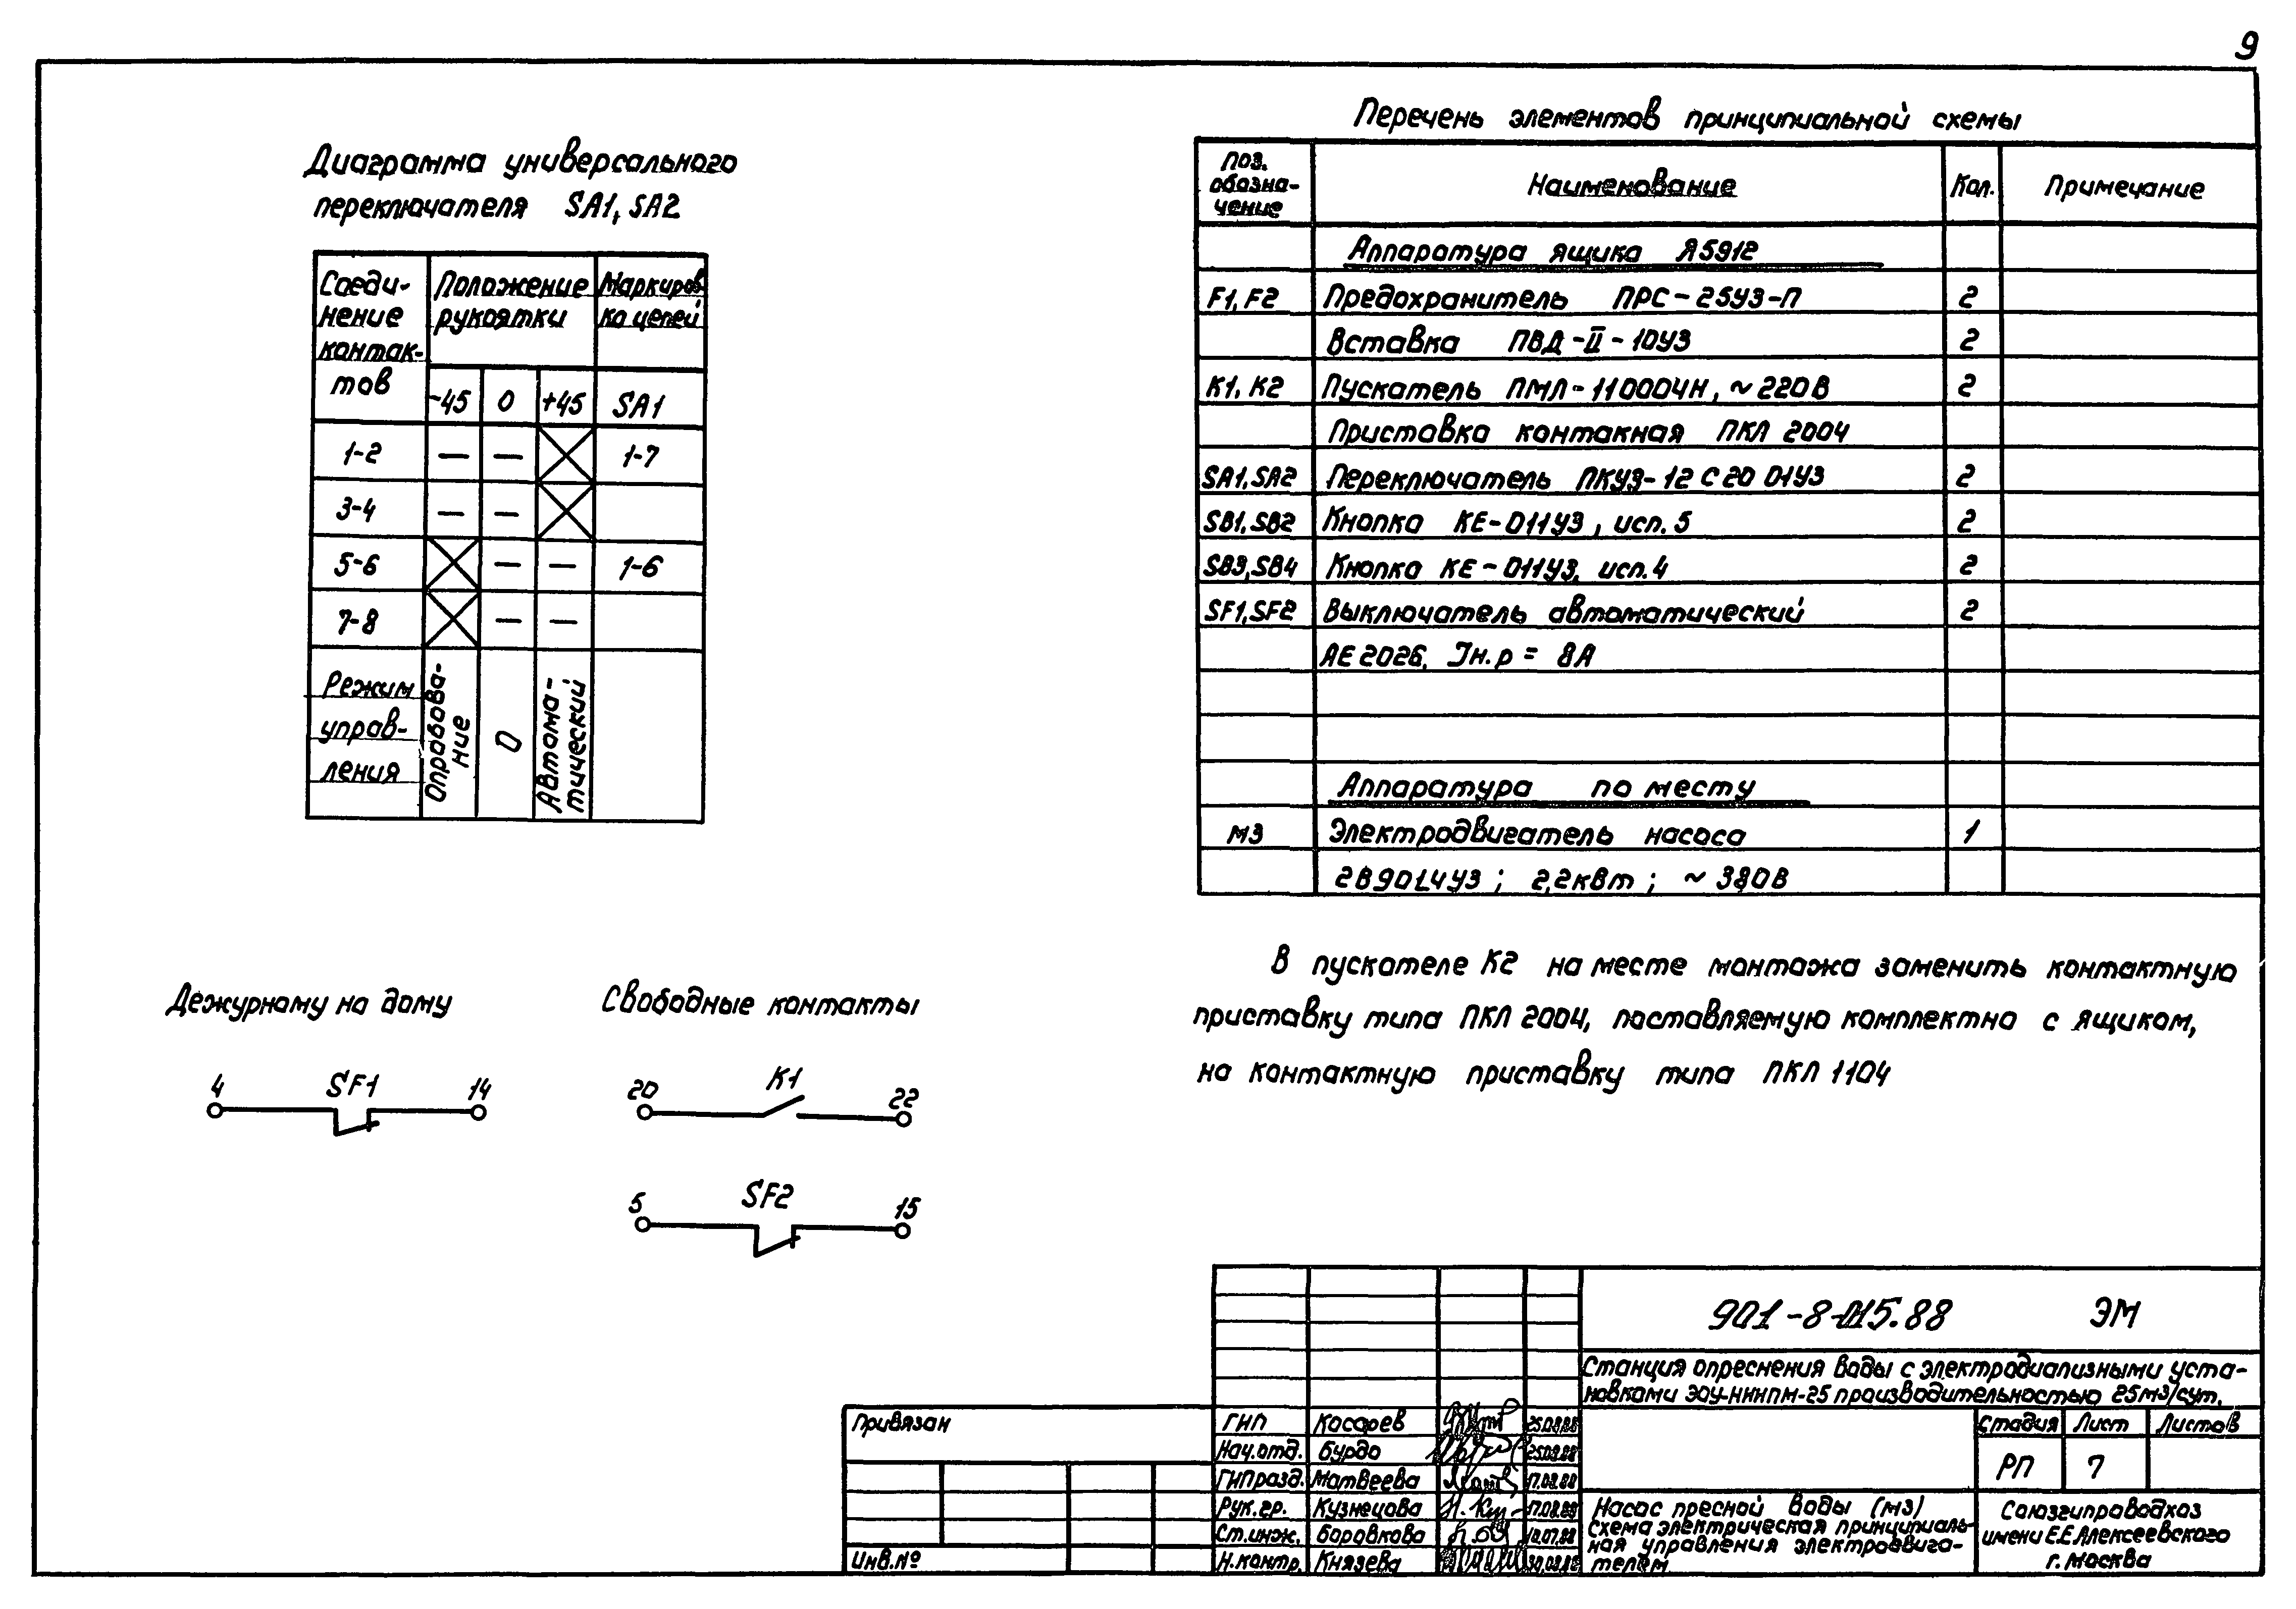 9
Диаграмма универсального
переключателя SA1, SA2
Соеди-
нение
контак-
тов
Положение
рукоятки
Маркиров-
ка цепей
-45 0 +45 SA1
1-2 — — 1-7
3-4 — —
5-6 — — 1-6
7-8 — —
Режим
управ-
ления
Опробова-
ние
0
Автома-
тический
Перечень элементов принципиальной схемы
Поз.
обозна-
чение
Наименование Кол. Примечание
Аппаратура ящика Я5912
F1, F2 Предохранитель ПРС-25У3-П 2
Вставка ПВД-II-10У3 2
К1, К2 Пускатель ПМЛ-110004Н, ~220В 2
Приставка контакная ПКЛ 2004
SA1, SA2 Переключатель ПКУ3-12С20 01У3 2
SB1, SB2 Кнопка КЕ-011У3, исп. 5 2
SB3, SB4 Кнопка КЕ-011У3, исп. 4 2
SF1, SF2 Выключатель автоматический 2
АЕ2026, Iн.р = 8А
Аппаратура по месту
М3 Электродвигатель насоса 1
2В90L4У3; 2,2квт; ~380В
В пускателе К2 на месте монтажа заменить контактную
приставку типа ПКЛ 2004, поставляемую комплектно с ящиком,
на контактную приставку типа ПКЛ 1104
Дежурному на дому
4 SF1 14
Свободные контакты
20 К1 22
5 SF2 15
901-8-015.88 ЭМ
Станция опреснения воды с электродиализными уста-
новками ЭОУ-НИИПМ-25 производительностью 25м3/сут.
Привязан
Инв.№
ГИП Косарев 25.08.88
Нач.отд. Бурдо 25.08.88
ГИПразд. Матвеева 17.08.88
Рук.гр. Кузнецова 17.08.88
Ст.инж. Боровкова
Н.контр. Князева
Стадия Лист Листов
РП 7
Насос пресной воды (М3)
Схема электрическая принципиаль-
ная управления электродвига-
телем
Союзгипроводхоз
имени Е.Е.Алексеевского
г. Москва